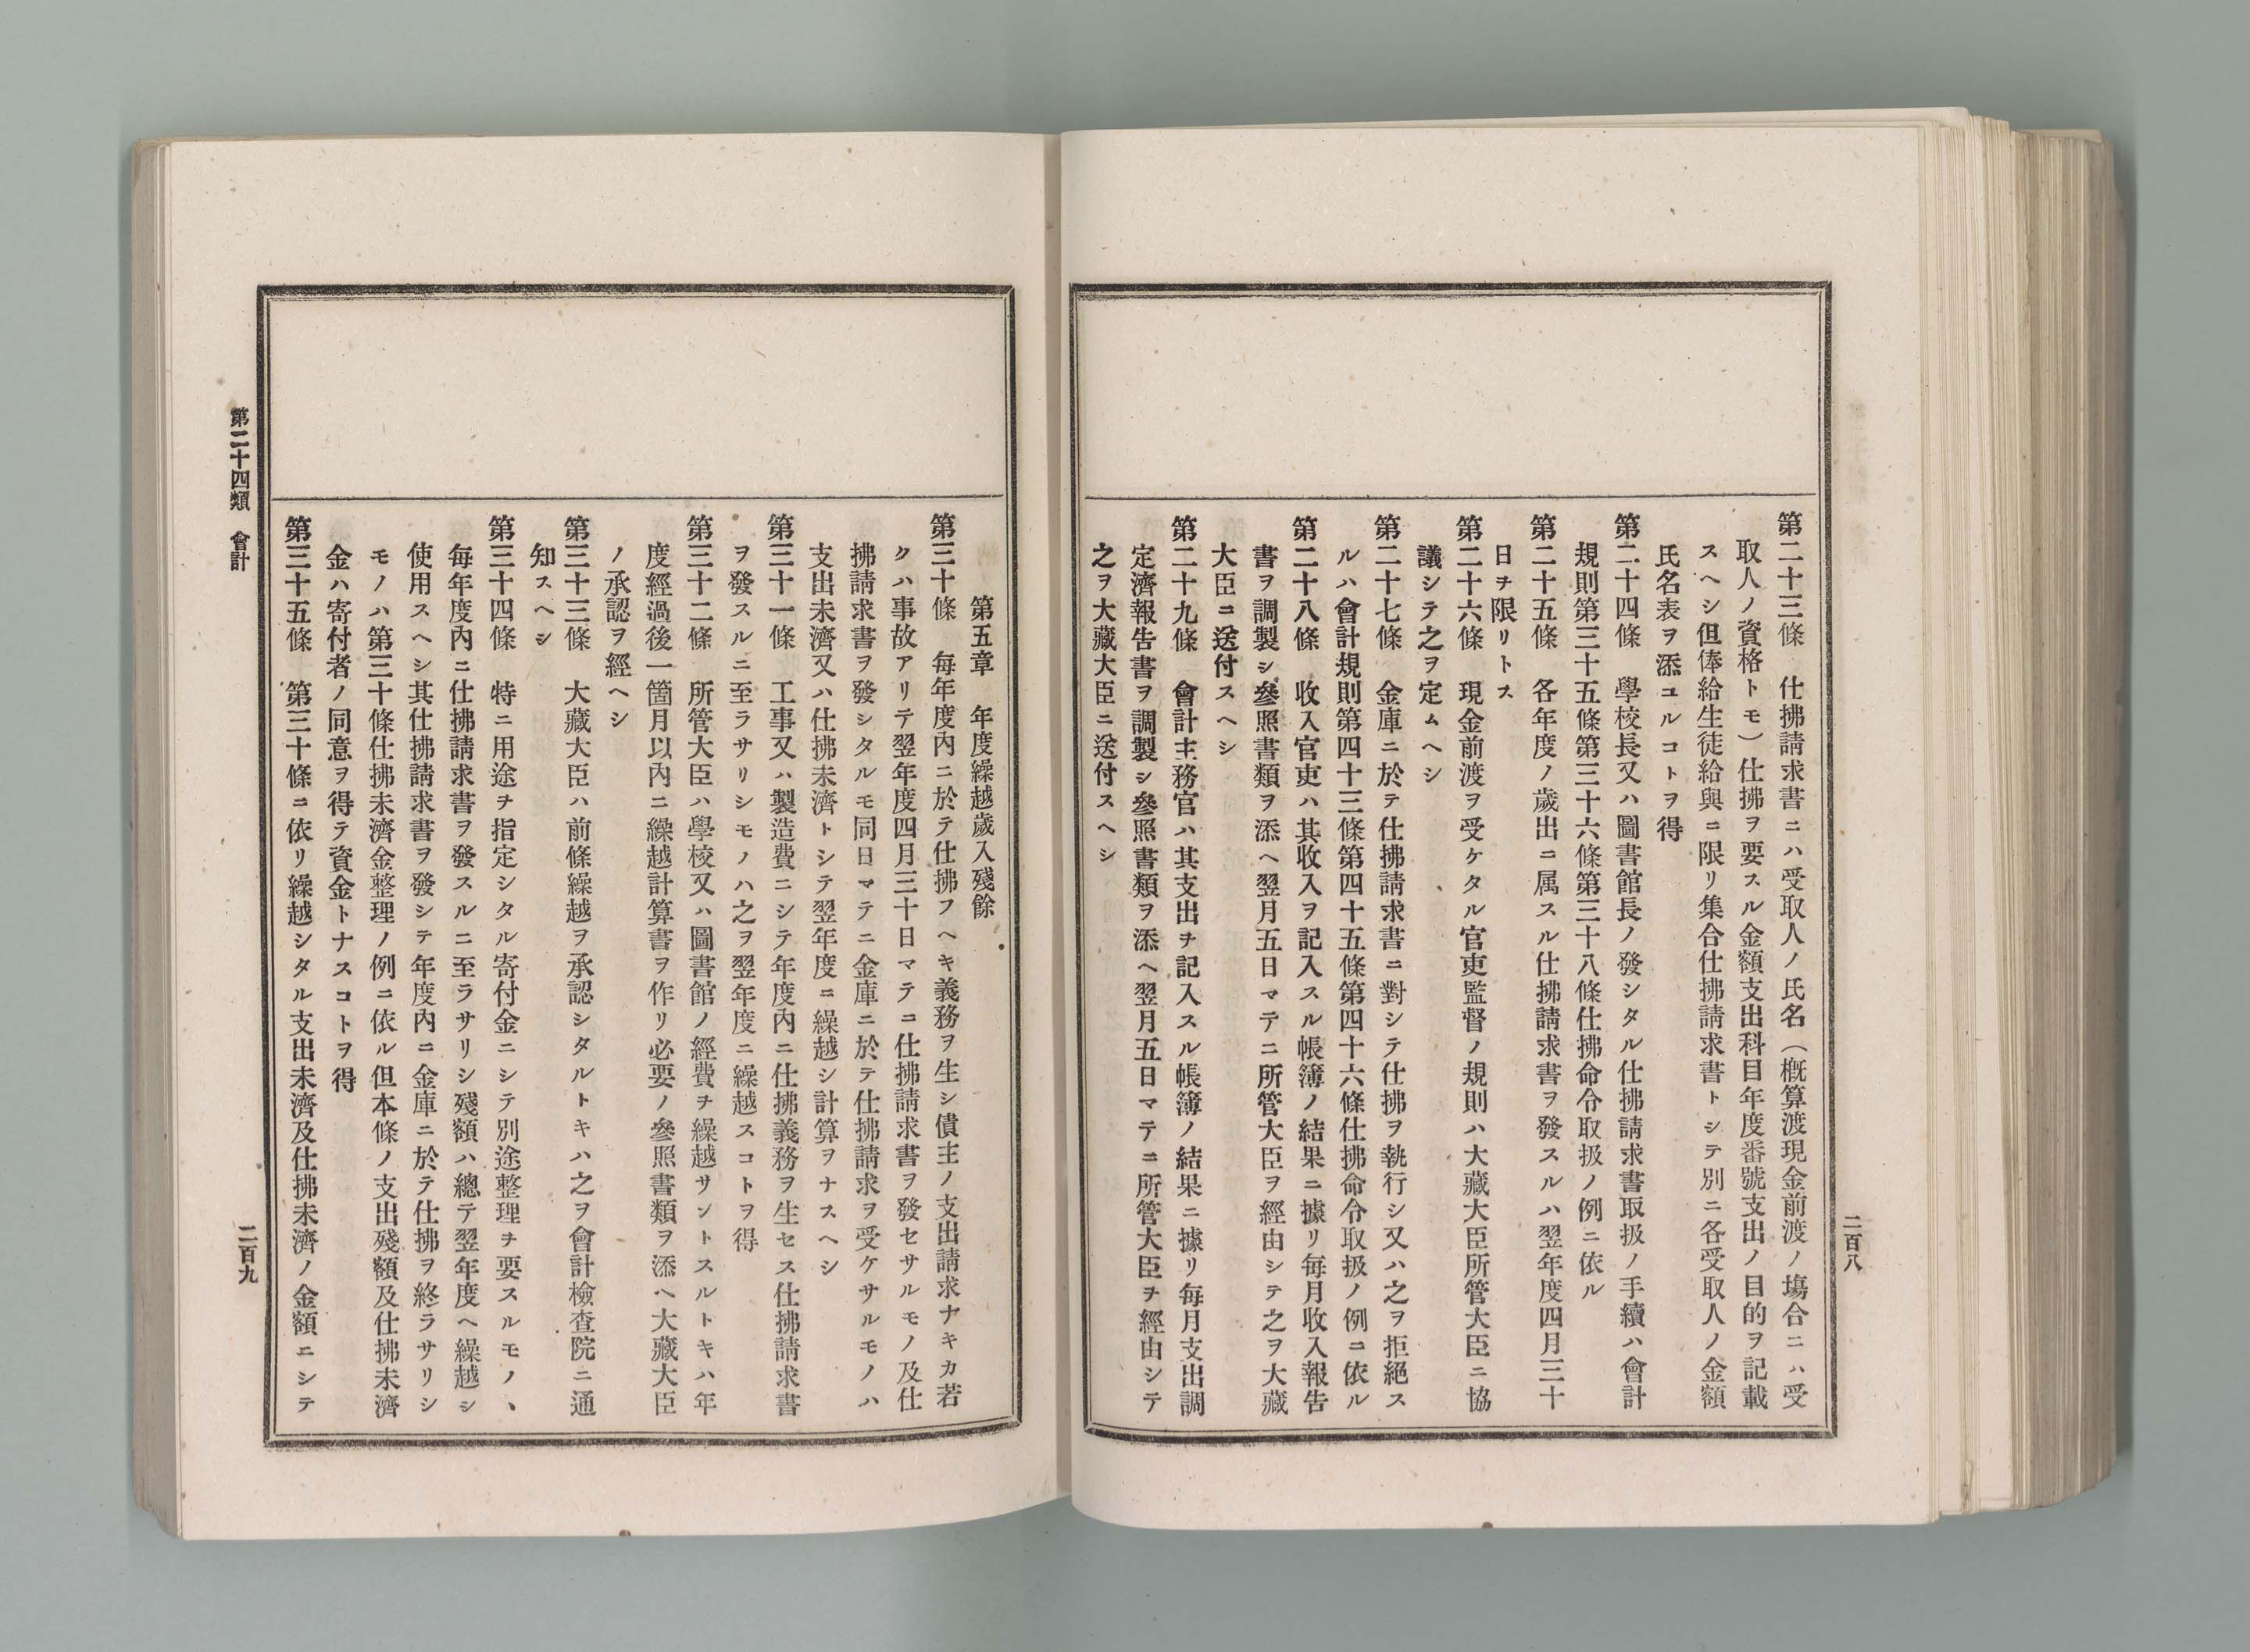 二百八
第二十三條　仕拂請求書ニハ受取人ノ氏名（概算渡現金前渡ノ塲合ニハ受
取人ノ資格トモ）仕拂ヲ要スル金額支出科目年度番號支出ノ目的ヲ記載
スヘシ但俸給生徒給與ニ限リ集合仕拂請求書トシテ別ニ各受取人ノ金額
氏名表ヲ添ユルコトヲ得
第二十四條　學校長又ハ圖書館長ノ發シタル仕拂請求書取扱ノ手續ハ會計
規則第三十五條第三十六條第三十八條仕拂命令取扱ノ例ニ依ル
第二十五條　各年度ノ歲出ニ属スル仕拂請求書ヲ發スルハ翌年度四月三十
日ヲ限リトス
第二十六條　現金前渡ヲ受ケタル官吏監督ノ規則ハ大藏大臣所管大臣ニ協
議シテ之ヲ定ムヘシ
第二十七條　金庫ニ於テ仕拂請求書ニ對シテ仕拂ヲ執行シ又ハ之ヲ拒絕ス
ルハ會計規則第四十三條第四十五條第四十六條仕拂命令取扱ノ例ニ依ル
第二十八條　收入官吏ハ其收入ヲ記入スル帳簿ノ結果ニ據リ每月收入報告
書ヲ調製シ參照書類ヲ添ヘ翌月五日マテニ所管大臣ヲ經由シテ之ヲ大藏
大臣ニ送付スヘシ
第二十九條　會計主務官ハ其支出ヲ記入スル帳簿ノ結果ニ據リ每月支出調
定濟報告書ヲ調製シ參照書類ヲ添ヘ翌月五日マテニ所管大臣ヲ經由シテ
之ヲ大藏大臣ニ送付スヘシ
第五章　年度繰越歲入殘餘
第三十條　每年度內ニ於テ仕拂フヘキ義務ヲ生シ債主ノ支出請求ナキカ若
クハ事故アリテ翌年度四月三十日マテニ仕拂請求書ヲ發セサルモノ及仕
拂請求書ヲ發シタルモ同日マテニ金庫ニ於テ仕拂請求ヲ受ケサルモノハ
支出未濟又ハ仕拂未濟トシテ翌年度ニ繰越シ計算ヲナスヘシ
第三十一條　工事又ハ製造費ニシテ年度內ニ仕拂義務ヲ生セス仕拂請求書
ヲ發スルニ至ラサリシモノハ之ヲ翌年度ニ繰越スコトヲ得
第三十二條　所管大臣ハ學校又ハ圖書館ノ經費ヲ繰越サントスルトキハ年
度經過後一箇月以內ニ繰越計算書ヲ作リ必要ノ參照書類ヲ添ヘ大藏大臣
ノ承認ヲ經ヘシ
第三十三條　大藏大臣ハ前條繰越ヲ承認シタルトキハ之ヲ會計檢査院ニ通
知スヘシ
第三十四條　特ニ用途ヲ指定シタル寄付金ニシテ別途整理ヲ要スルモノヽ
每年度內ニ仕拂請求書ヲ發スルニ至ラサリシ殘額ハ總テ翌年度ヘ繰越シ
使用スヘシ其仕拂請求書ヲ發シテ年度內ニ金庫ニ於テ仕拂ヲ終ラサリシ
モノハ第三十條仕拂未濟金整理ノ例ニ依ル但本條ノ支出殘額及仕拂未濟
金ハ寄付者ノ同意ヲ得テ資金トナスコトヲ得
第三十五條　第三十條ニ依リ繰越シタル支出未濟及仕拂未濟ノ金額ニシテ
第二十四類　會計
二百九